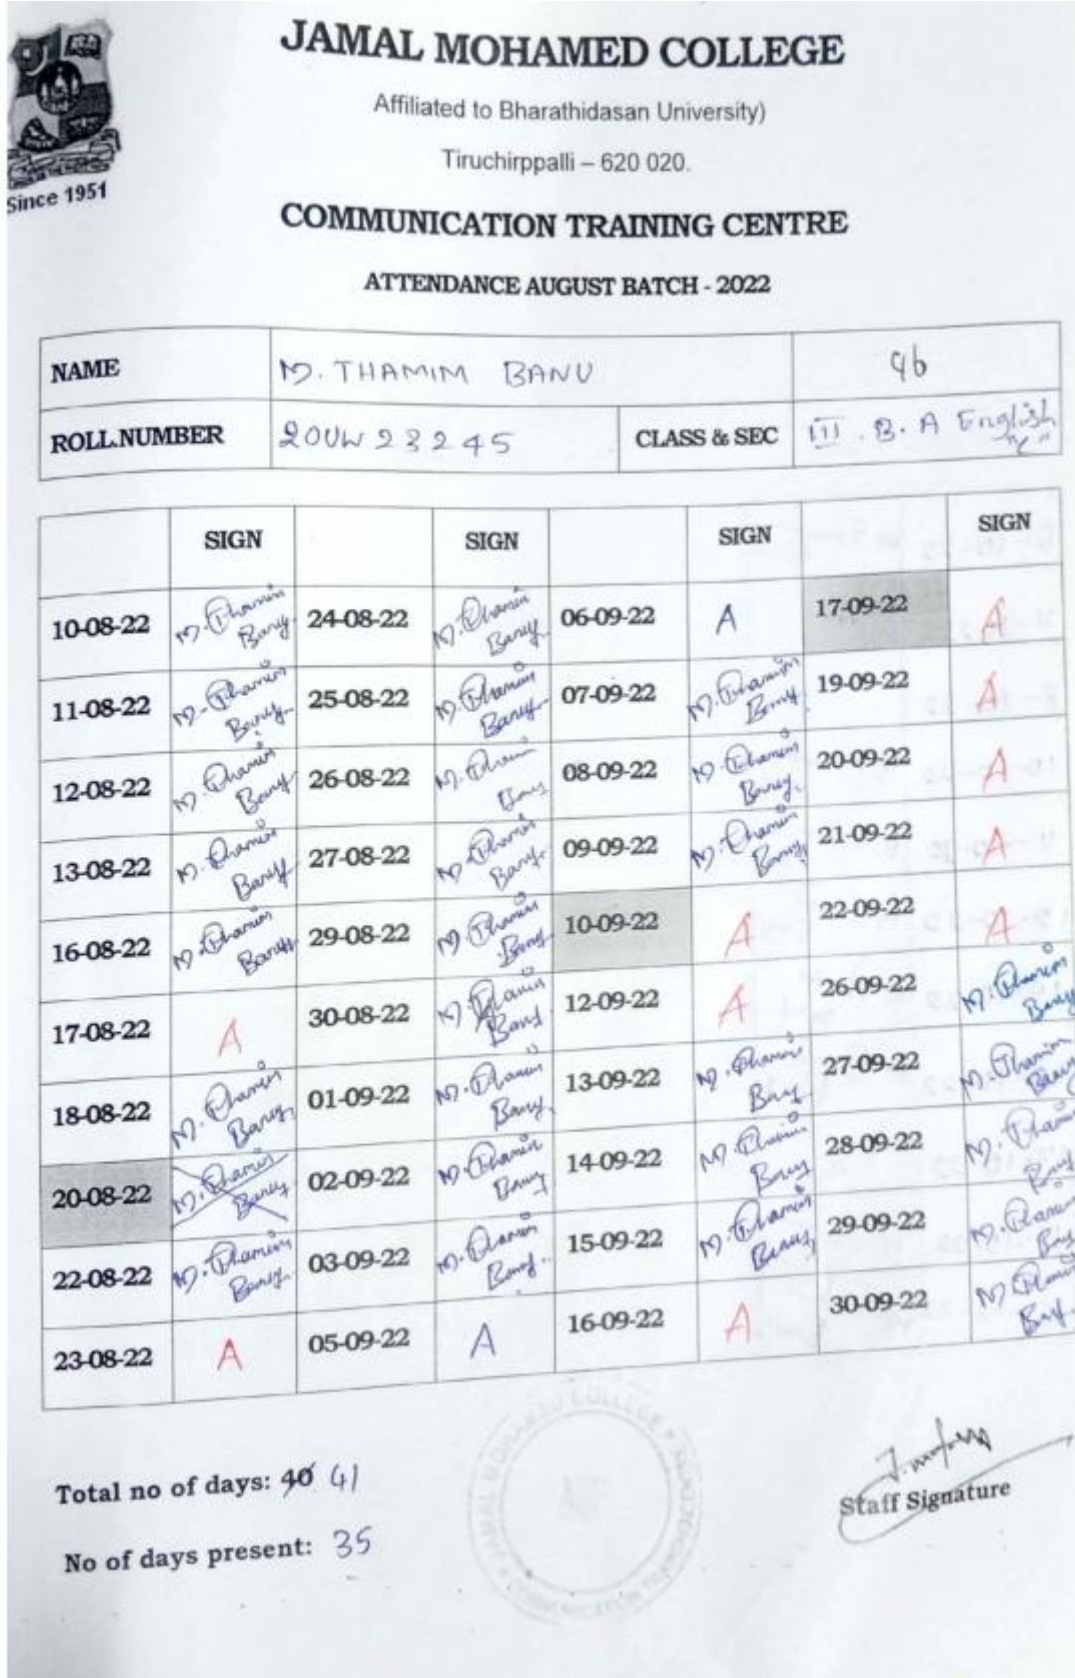 JAMAL MOHAMED COLLEGE
Affiliated to Bharathidasan University)
Tiruchirppalli – 620 020.
Since 1951
COMMUNICATION TRAINING CENTRE
ATTENDANCE AUGUST BATCH - 2022
NAME M. THAMIM BANU 96
ROLL.NUMBER 20UW23245 CLASS & SEC III . B. A English "C"
SIGN SIGN SIGN SIGN
10-08-22 M. Thamim Banu 24-08-22 M. Thamim Banu 06-09-22 A 17-09-22 A
11-08-22 M. Thamim Banu 25-08-22 M. Thamim Banu 07-09-22 M. Thamim Banu 19-09-22 A
12-08-22 M. Thamim Banu 26-08-22 M. Thamim Banu 08-09-22 M. Thamim Banu 20-09-22 A
13-08-22 M. Thamim Banu 27-08-22 M. Thamim Banu 09-09-22 M. Thamim Banu 21-09-22 A
16-08-22 M. Thamim Banu 29-08-22 M. Thamim Banu 10-09-22 A 22-09-22 A
17-08-22 A 30-08-22 M. Thamim Banu 12-09-22 A 26-09-22 M. Thamim Banu
18-08-22 M. Thamim Banu 01-09-22 M. Thamim Banu 13-09-22 M. Thamim Banu 27-09-22 M. Thamim Banu
20-08-22 M. Thamim Banu 02-09-22 M. Thamim Banu 14-09-22 M. Thamim Banu 28-09-22 M. Thamim Banu
22-08-22 M. Thamim Banu 03-09-22 M. Thamim Banu 15-09-22 M. Thamim Banu 29-09-22 M. Thamim Banu
23-08-22 A 05-09-22 A 16-09-22 A 30-09-22 M. Thamim Banu
Total no of days: 40 41
No of days present: 35
Staff Signature